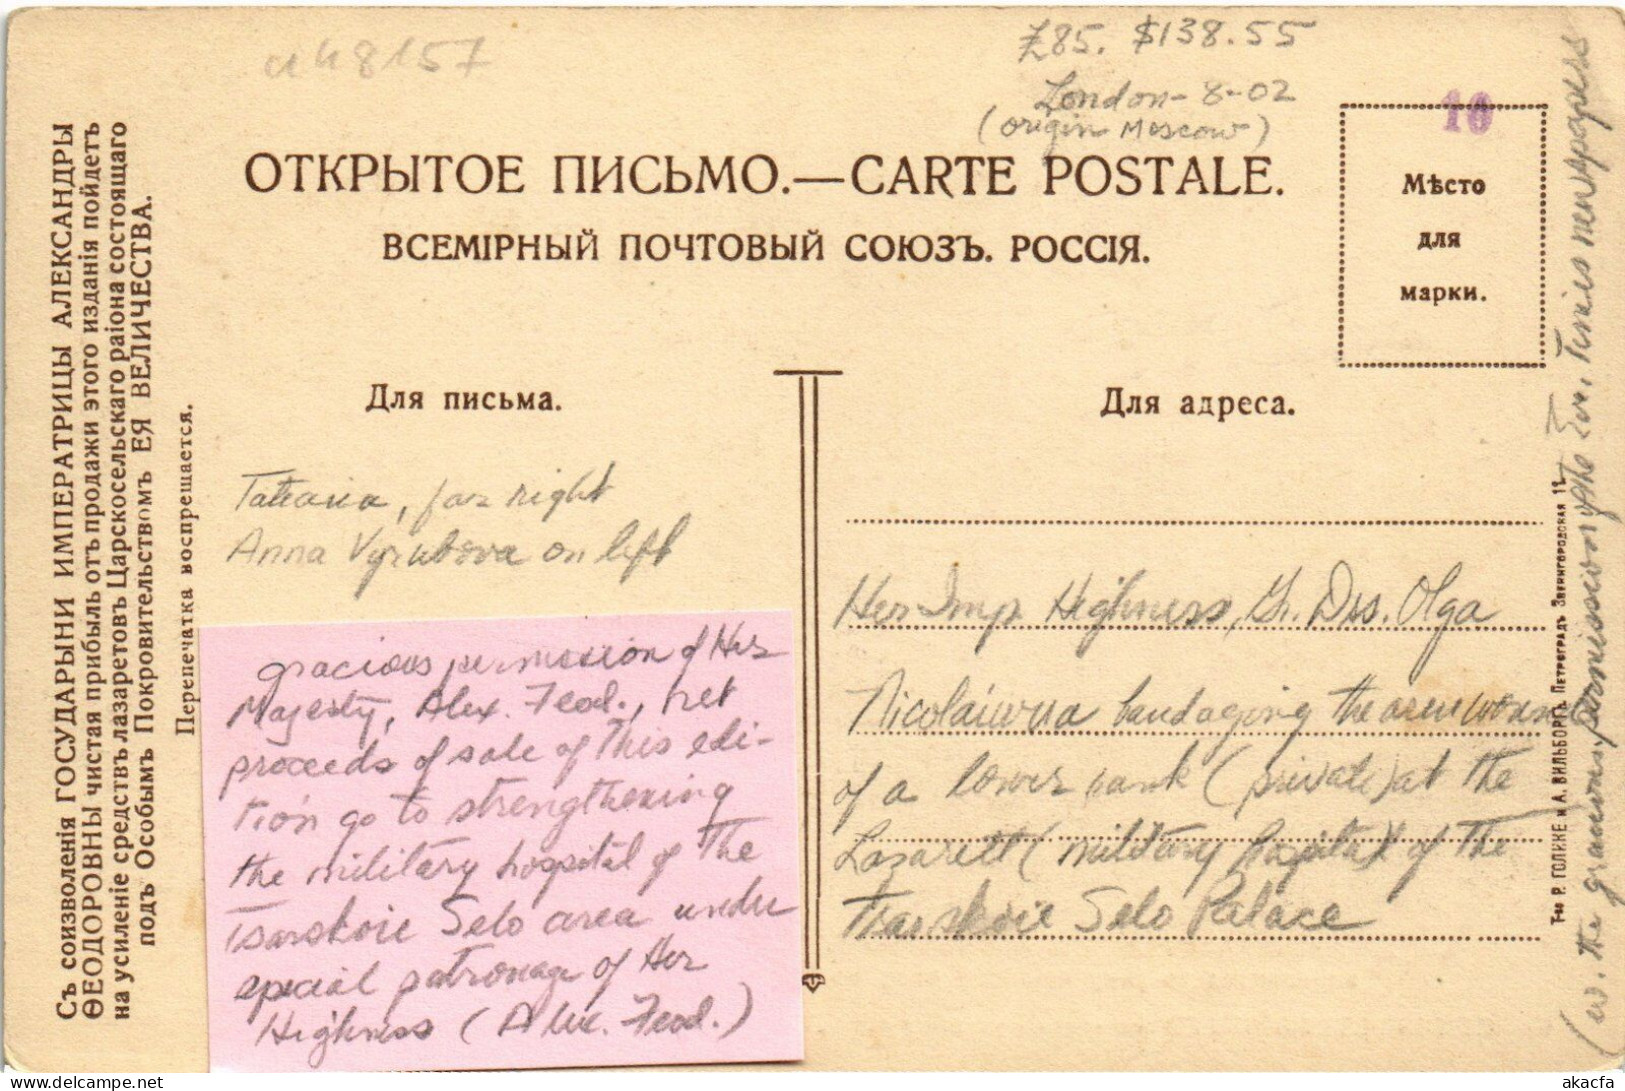 ан 8157
£85. $138.55
London - 8-02
(origin Moscow)
16
ОТКРЫТОЕ ПИСЬМО.—CARTE POSTALE.
ВСЕМІРНЫЙ ПОЧТОВЫЙ СОЮЗЪ. РОССІЯ.
Мѣсто
для
марки.
Съ соизволенія ГОСУДАРЫНИ ИМПЕРАТРИЦЫ АЛЕКСАНДРЫ
ѲЕОДОРОВНЫ чистая прибыль отъ продажи этого изданія пойдетъ
на усиленіе средствъ лазаретовъ Царскосельскаго раіона состоящаго
подъ Особымъ Покровительствомъ ЕЯ ВЕЛИЧЕСТВА.
Перепечатка воспрещается.
Для письма.
Для адреса.
Tatiana, far right
Anna Vyrubova on left
gracious permission of Her
Majesty, Alex. Feod., net
proceeds of sale of this edi-
tion go to strengthening
the military hospital of the
Tsarskoie Selo area under
special patronage of Her
Highness (Alex. Feod.)
Her Imp. Highness, Gr. Dss. Olga
Nicolaievna bandaging the arm
of a lower rank (private) at the
Lazarett (military hospital) of the
Tsarskoie Selo Palace
Т-во Р. ГОЛИКЕ и А. ВИЛЬБОРГЪ. Петроградъ. Звенигородская 11
(w. the permission of the newspapers
akacfa